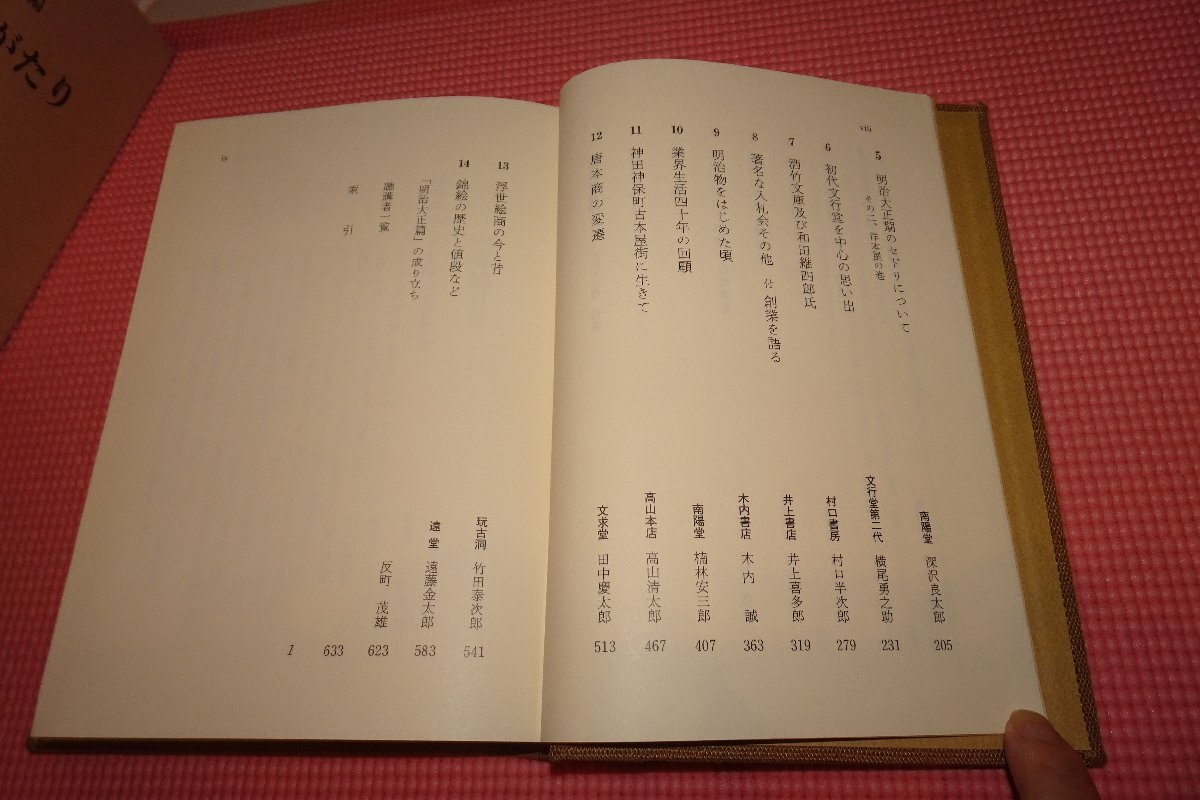 がたり
viii
5 明治大正期のセドリについて
その二、洋本屋の巻
南陽堂 深沢良太郎 205
6 初代文行堂を中心の思い出
文行堂第二代 横尾勇之助 231
7 酒竹文庫及び和田維四郎氏
村口書房 村口半次郎 279
8 著名な入札会その他 付 創業を語る
井上書店 井上喜多郎 319
9 明治物をはじめた頃
木内書店 木内 誠 363
10 業界生活四十年の回顧
南陽堂 楠林安三郎 407
11 神田神保町古本屋街に生きて
高山本店 高山清太郎 467
12 唐本商の変遷
文求堂 田中慶太郎 513
ix
13 浮世絵商の今と昔
玩古洞 竹田泰次郎 541
14 錦絵の歴史と値段など
遠堂 遠藤金太郎 583
「明治大正篇」の成り立ち
反町 茂雄 623
聴講者一覧 633
索引 1